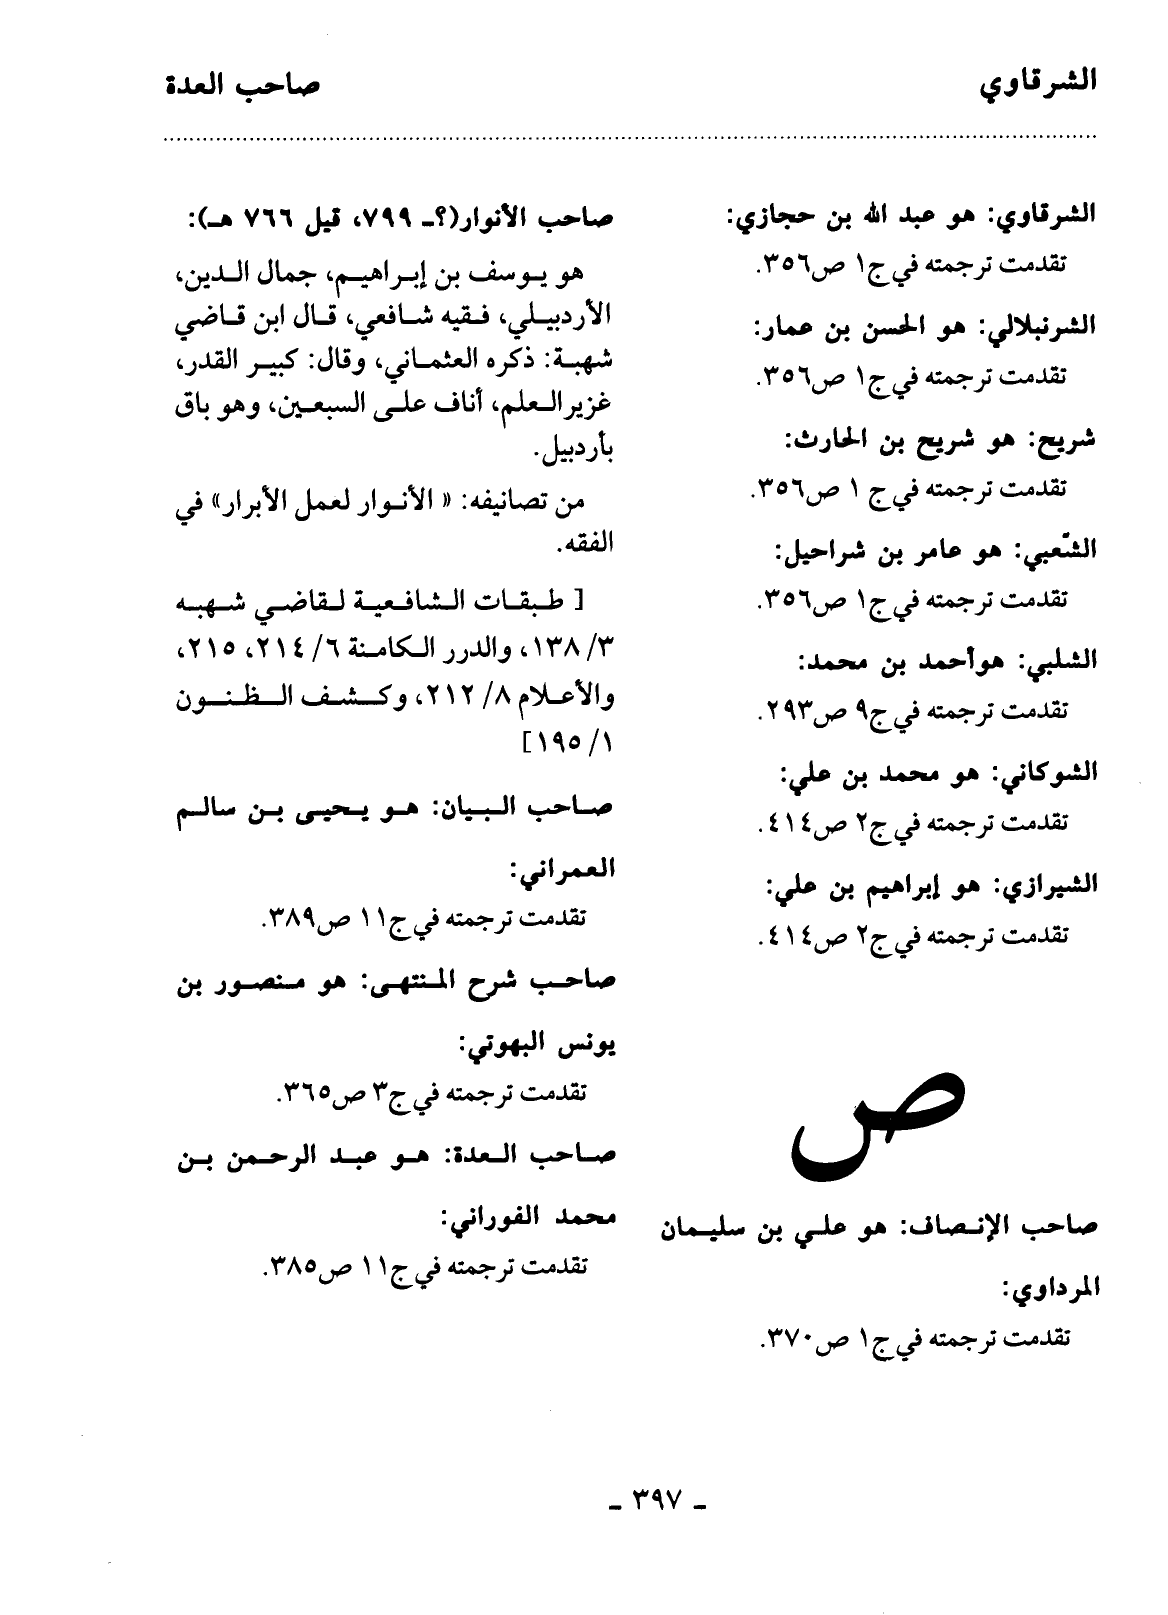 الشرقاوي
صاحب العدة
الشرقاوي: هو عبد الله بن حجازي:
تقدمت ترجمته في ج١ ص٣٥٦.
الشرنبلالي: هو الحسن بن عمار:
تقدمت ترجمته في ج١ ص٣٥٦.
شريح: هو شريح بن الحارث:
تقدمت ترجمته في ج ١ ص٣٥٦.
الشّعبي: هو عامر بن شراحيل:
تقدمت ترجمته في ج١ ص٣٥٦.
الشلبي: هوأحمد بن محمد:
تقدمت ترجمته في ج٩ ص٢٩٣.
الشوكاني: هو محمد بن علي:
تقدمت ترجمته في ج٢ ص٤١٤.
الشيرازي: هو إبراهيم بن علي:
تقدمت ترجمته في ج٢ ص٤١٤.
ص
صاحب الإنصاف: هو علي بن سليمان
المرداوي:
تقدمت ترجمته في ج١ ص٣٧٠.
صاحب الأنوار(؟ـ ٧٩٩، قيل ٧٦٦ هـ):
هو يوسف بن إبراهيم، جمال الدين،
الأردبيلي، فقيه شافعي، قال ابن قاضي
شهبة: ذكره العثماني، وقال: كبير القدر،
غزير العلم، أناف على السبعين، وهو باق
بأردبيل.
من تصانيفه: « الأنوار لعمل الأبرار» في
الفقه.
[ طبقات الشافعية لقاضي شهبه
٣/ ١٣٨، والدرر الكامنة ٦/ ٢١٤، ٢١٥،
والأعلام ٨/ ٢١٢، وكشف الظنون
١/ ١٩٥]
صاحب البيان: هو يحيى بن سالم
العمراني:
تقدمت ترجمته في ج١١ ص٣٨٩.
صاحب شرح المنتهى: هو منصور بن
يونس البهوتي:
تقدمت ترجمته في ج٣ ص٣٦٥.
صاحب العدة: هو عبد الرحمن بن
محمد الفوراني:
تقدمت ترجمته في ج١١ ص٣٨٥.
ـ ٣٩٧ ـ